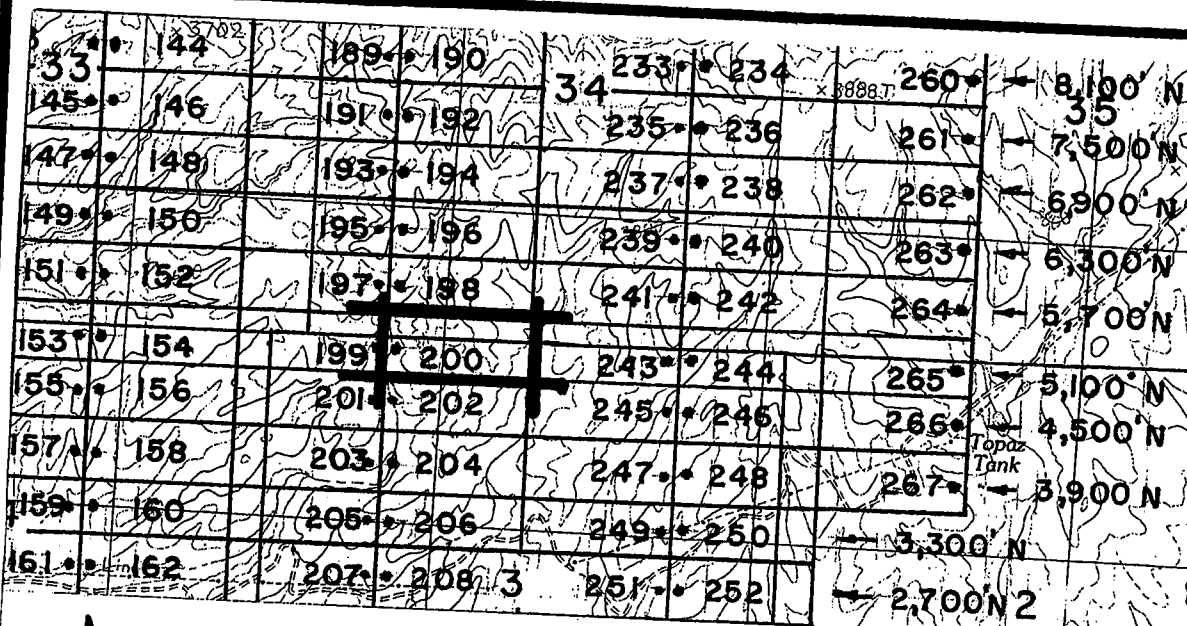 × 3702
144 189 190 233 234 260 8,100' N
33 34 × 3888T 35
145 146 191 192 235 236 261 7,500'N
147 148 193 194 237 238 262 6,900'N
149 150 195 196 239 240 263 6,300'N
151 152 197 198 241 242 264 5,700'N
153 154 199 200 243 244 265 5,100'N
155 156 201 202 245 246 266 4,500'N
Topaz
Tank
157 158 203 204 247 248 267 3,900 N
159 160 205 206 249 250 3,300' N
161 162 207 208 3 251 252 2,700'N 2